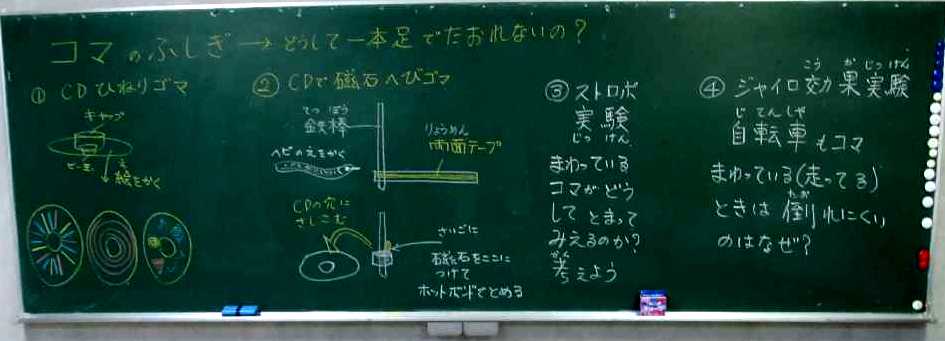 コマのふしぎ→どうして一本足でたおれないの？
① CDひねりゴマ
キャップ
ビー玉
え
絵をかく
② CDで磁石へびゴマ
てつ ぼう
鉄棒
りょうめん
両面テープ
ヘビのえをかく
CDの穴に
さしこむ
さいごに
磁石をここに
つけて
ホットボンドでとめる
③ ストロボ
実験
じっ けん
まわっている
コマがどう
して とまって
みえるのか？
かん
考えよう
こう か じっ けん
④ ジャイロ効果実験
じ てん しゃ
自転車もコマ
まわっている(走ってる)
たお
ときは 倒れにくい
のはなぜ？